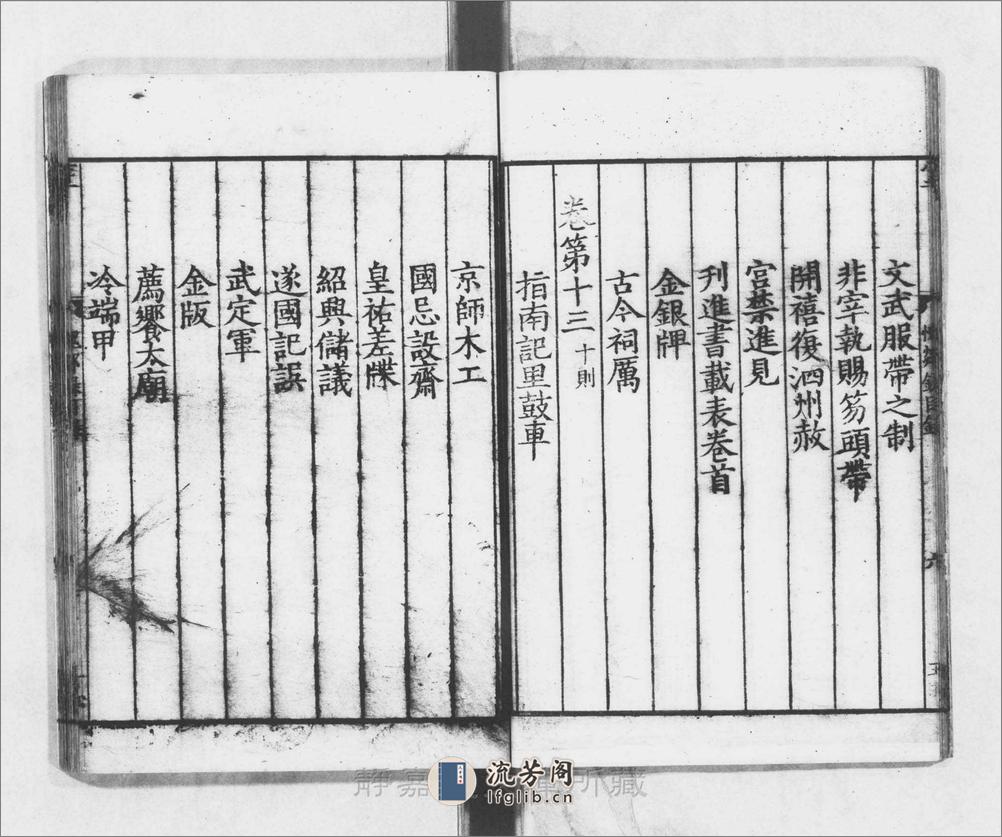 文武服帶之制
非宰執賜笏頭帶
開禧復泗州赦
宮禁進見
刋進書載表卷首
金銀牌
古今祠厲
卷第十三 十則
指南記里鼓車
京師木工
國忌設齋
皇祐差牒
紹興儲議
遂國記誤
武定軍
金版
薦饗太廟
冷端甲
流芳阁
lfglib.cn